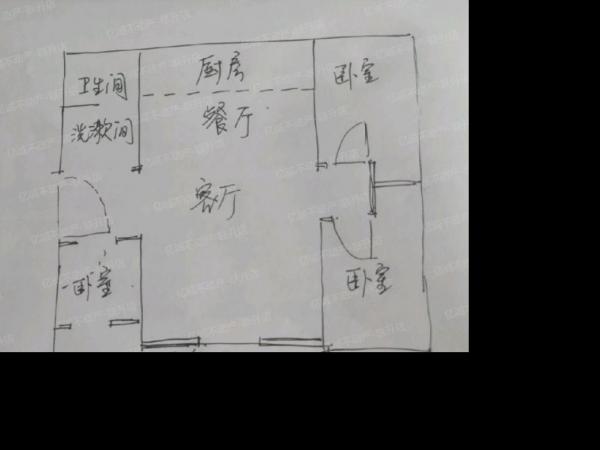 卫生间
厨房
卧室
洗漱间
餐厅
客厅
卧室
卧室